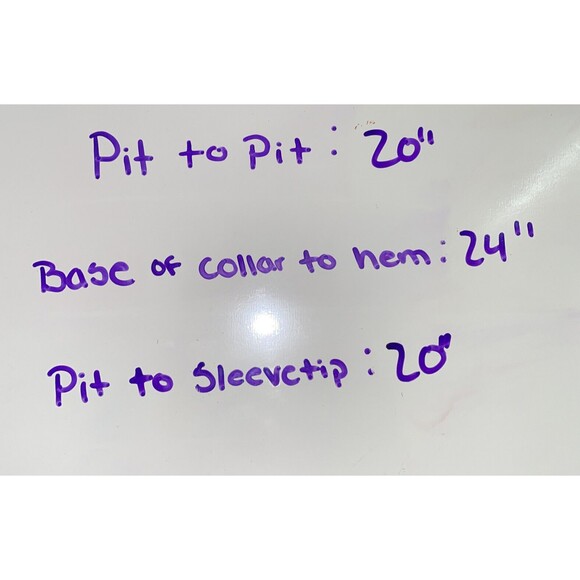 Pit to Pit: 20"
Base of collar to hem: 24"
Pit to Sleevetip: 20"